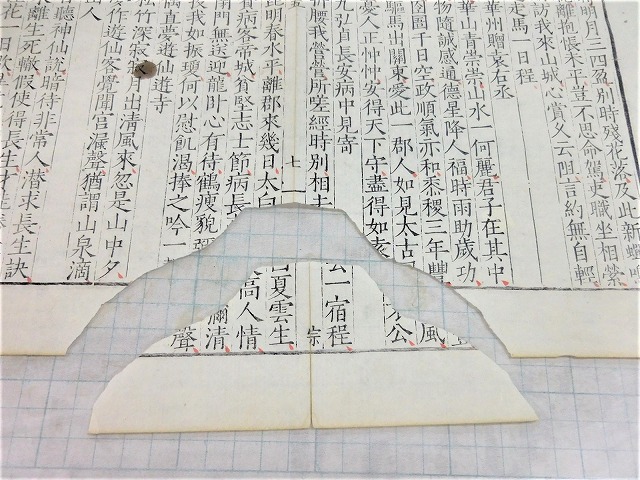 明月三四盈別時殘花落及此新蟬
離抱悵未平豈不思命駕吏職坐相縈
訪我來山城心賞久云阻言約無自輕
走馬一日程
華州贈袁右丞
華山青崇崇山水一何麗君子在其中
物隨誠感通德星降人福時雨助歲功
囹圄千日空政順氣亦和黍稷三年豐
驅馬出關東愛此 郡人如見太古風
憂人正忡忡安得天下守盡得如袁公
九弘貞長安病中見寄
折腰我營營所嗟經時別相去一宿程
五 七 宗
明春水平離郡來幾日太白夏雲生
貧病客帝城貧堅志士節病長高人情
閉門無送迎龍臥心有待鶴瘦貌彌清
我如振瓊何以慰飢渴捧之吟一聲
直夢遊仙遊寺
松竹深寂寂月出清風來忽是山中夕
作遊仙客覺聞官漏聲猶謂山泉滴
山人
聽神仙說晴待非常人潛求長生訣
離生死轍假使得長生才